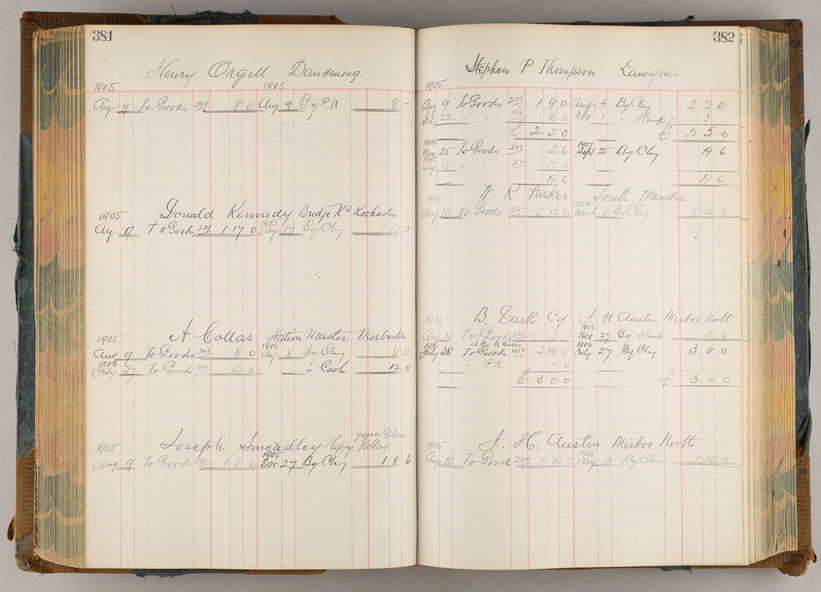 381
Henry Orgill Dandenong
1905 1905
Aug 9 To Goods 8 0 Aug 9 By P N 8 -
1905 Donald Kennedy Bridge Rd Rochester
Aug 9 To Goods 221 1 17 0 1905 Aug 17 By Chq 1 17 0
1905 A Collas Station Master
Aug 9 To Goods 8 0 1905 Aug 8 By Chq 8 0
1906 July 27 To Goods 12 0 " Cash 12 0
1905 Joseph Smeadley Happy Valley
Aug 9 To Goods 1 8 6 1905 Dec 27 By Chq 1 8 6
382
Stephen P Thompson Lancefield
1905
Aug 9 To Goods 221 1 9 0 Aug 3 By Chq 2 2 0
22 " " 16 0 Nov 1 " Stamps 3
£ 2 5 0 £ 2 5 0
25 To Goods 2 6 1907 Sept 25 By Chq 19 6
Aug 15 " " 17 0
19 6 19 6
1905 W. R. Parker South Wandin
Aug 10 To Goods 222 5 12 6 1906 March 1 By Chq 5 12 6
1905 B. Dark C/o J H Austin Mirboo North
Aug 10 To Goods 3 0 1905 Nov 27 By Stamps 3 0
July 28 To Goods 402 2 16 0 1906 July 27 By Chq 3 0 0
4 0
£ 3 0 0 £ 3 0 0
1905 J. H. Austin Mirboo North
Aug 10 To Goods 222 1 10 0 1905 Aug 10 By Chq 1 10 0